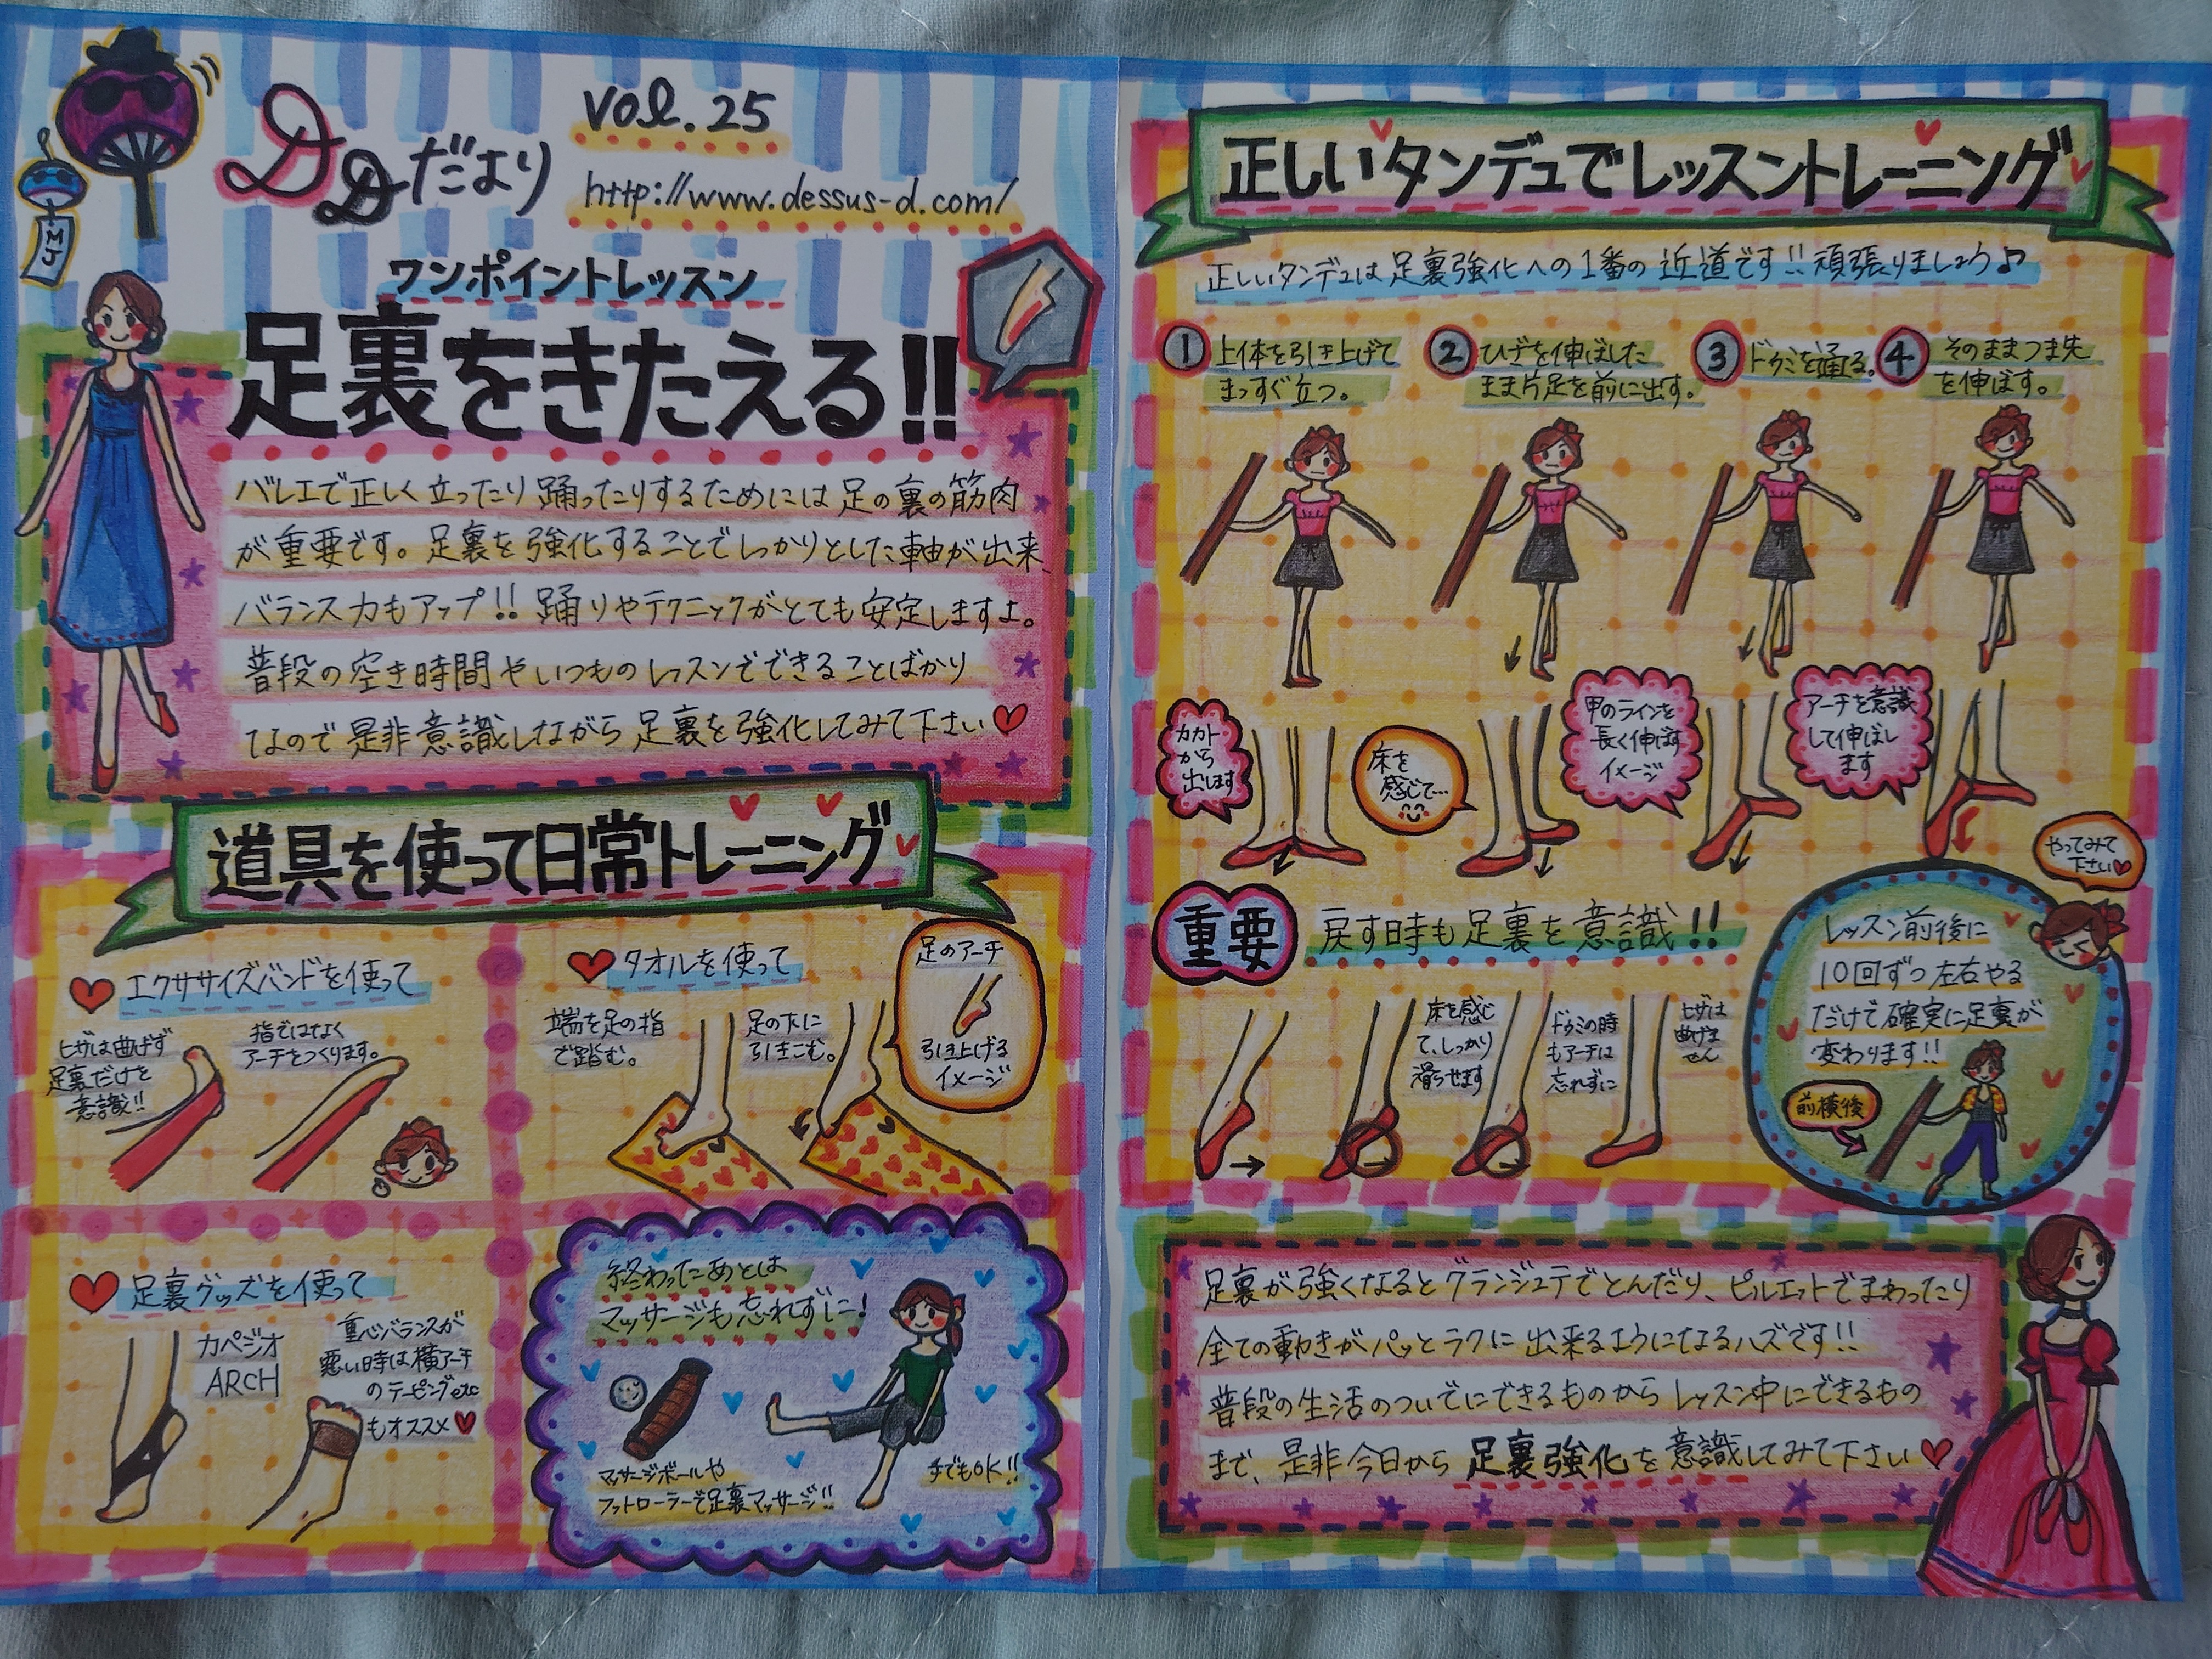 DDだより
vol.25
http://www.dessus-d.com/
MJ
ワンポイントレッスン
足裏をきたえる!!
バレエで正しく立ったり踊ったりするためには足の裏の筋肉
が重要です。足裏を強化することでしっかりとした軸が出来、
バランス力もアップ!!踊りやテクニックがとても安定しますよ。
普段の空き時間やいつものレッスンでできることばかり
なので是非意識しながら足裏を強化してみて下さい
道具を使って日常トレーニング
エクササイズバンドを使って
ヒザは曲げず
足裏だけを
意識!!
指ではなく
アーチをつくります。
タオルを使って
端を足の指
で踏む。
足の下に
引きこむ。
足のアーチ
引き上げる
イメージ
足裏グッズを使って
カペジオ
ARCH
重心バランスが
悪い時は横アーチ
のテーピングetc
もオススメ
終わったあとは
マッサージも忘れずに!
マッサージボールや
フットローラーで足裏マッサージ!!
手でもOK!!
正しいタンデュでレッスントレーニング
正しいタンデュは足裏強化への1番の近道です!!頑張りましょう♪
①上体を引き上げて
まっすぐ立つ。
②ひざを伸ばした
まま片足を前に出す。
③ドゥミを通る。
④そのままつま先
を伸ばす。
カカト
から
出します
床を
感じて…
甲のラインを
長く伸ばす
イメージ
アーチを意識
して伸ばし
ます
重要
戻す時も足裏を意識!!
床を感じ
て、しっかり
滑らせます
ドゥミの時
もアーチは
忘れずに
ヒザは
曲げま
せん
やってみて
下さい
レッスン前後に
10回ずつ左右やる
だけで確実に足裏が
変わります!!
前横後
足裏が強くなるとグランジュテでとんだり、ピルエットでまわったり
全ての動きがパッとラクに出来るようになるハズです!!
普段の生活のついでにできるものからレッスン中にできるもの
まで、是非今日から足裏強化を意識してみて下さい